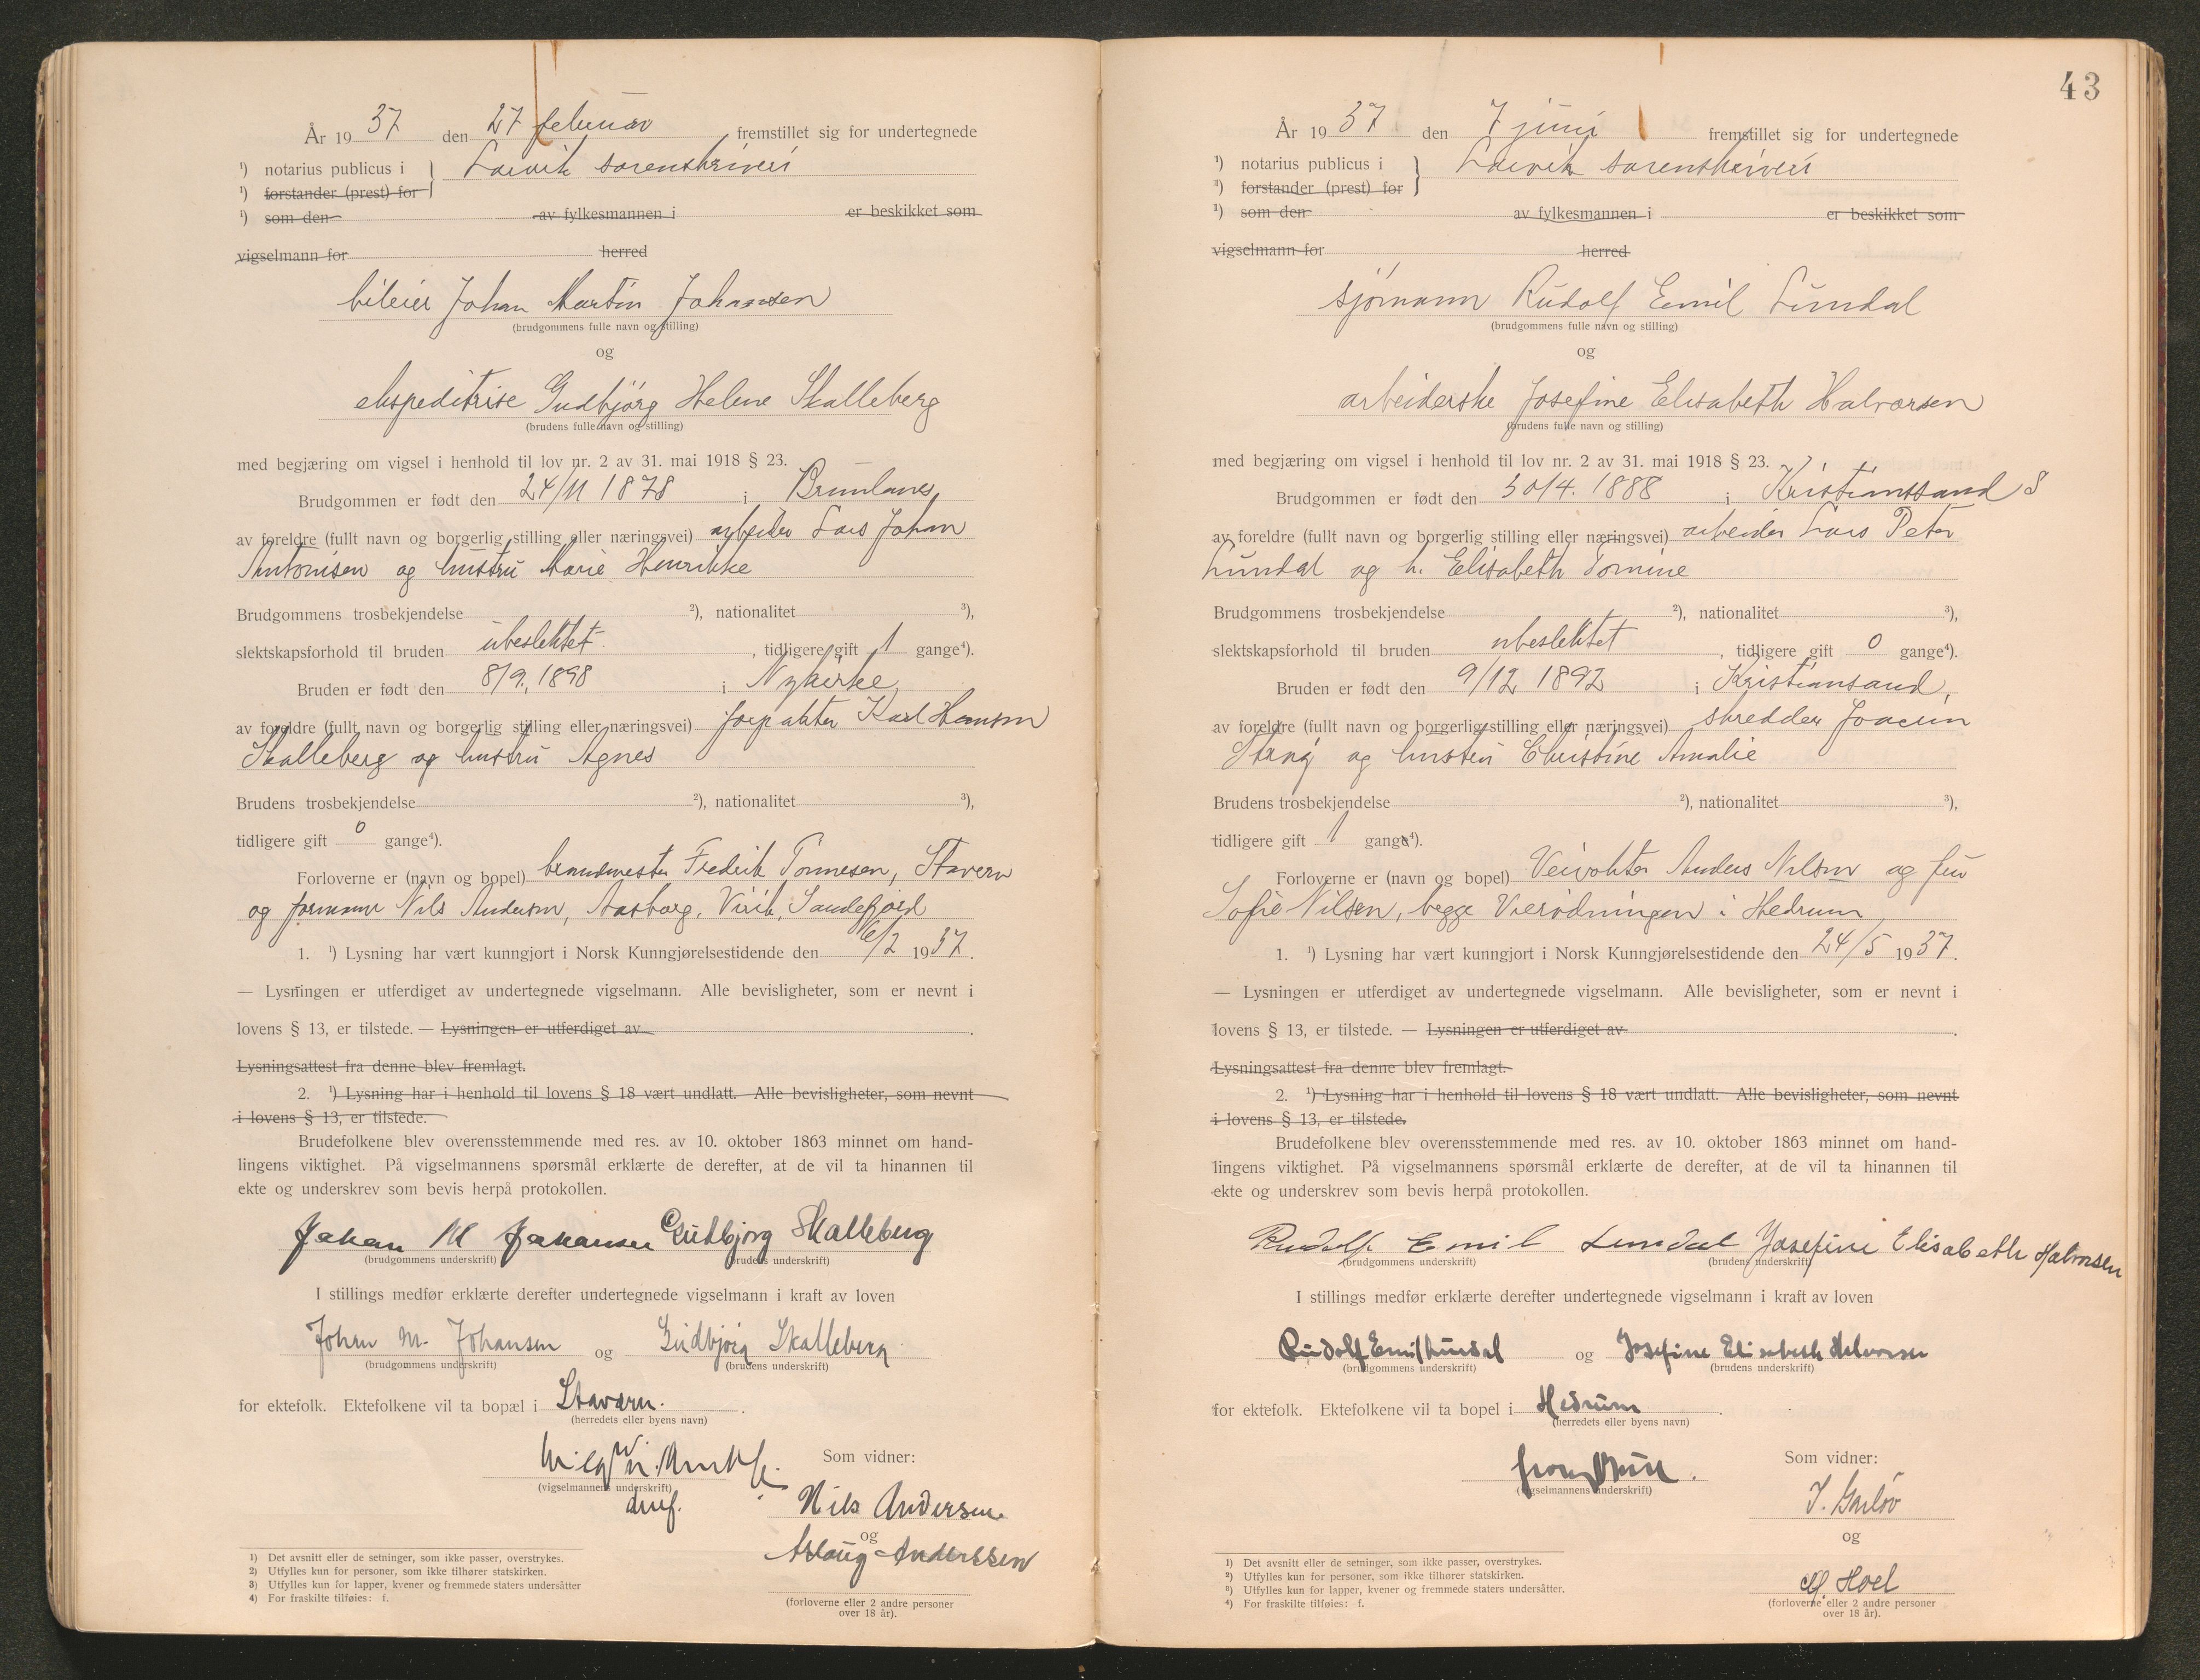 År 1937 den 27 februar fremstillet sig for undertegnede
¹) notarius publicus i } Larvik sorenskriveri
¹) forstander (prest) for
¹) som den av fylkesmannen i er beskikket som
vigselmann for herred
bileier Johan Martin Johansen
(brudgommens fulle navn og stilling)
og
ekspeditrise Gudbjörg Helene Skalleberg
(brudens fulle navn og stilling)
med begjæring om vigsel i henhold til lov nr. 2 av 31. mai 1918 § 23.
Brudgommen er født den 24/11 1878 i Brunlanes,
av foreldre (fullt navn og borgerlig stilling eller næringsvei) arbeider Lars Johan
Antonisen og hustru Marie Henrikke
Brudgommens trosbekjendelse ²), nationalitet ³),
slektskapsforhold til bruden ubeslektet , tidligere gift 1 gange⁴).
Bruden er født den 8/9. 1898 i Nykirke,
av foreldre (fullt navn og borgerlig stilling eller næringsvei) forpakter Karl Hansen
Skalleberg og hustru Agnes
Brudens trosbekjendelse ²), nationalitet ³),
tidligere gift 0 gange⁴).
Forloverne er (navn og bopel) brandmester Fredrik Tønnesen, Stavern
og formann Nils Andersen, Aasborg, Virik, Sandefjord
1. ¹) Lysning har vært kunngjort i Norsk Kunngjørelsestidende den 6/2 1937.
— Lysningen er utferdiget av undertegnede vigselmann. Alle bevisligheter, som er nevnt i
lovens § 13, er tilstede. — Lysningen er utferdiget av .
Lysningsattest fra denne blev fremlagt.
2. ¹) Lysning har i henhold til lovens § 18 vært undlatt. Alle bevisligheter, som nevnt
i lovens § 13, er tilstede.
Brudefolkene blev overensstemmende med res. av 10. oktober 1863 minnet om hand-
lingens viktighet. På vigselmannens spørsmål erklærte de derefter, at de vil ta hinannen til
ekte og underskrev som bevis herpå protokollen.
Johan M Johansen Gudbjörg Skalleberg
(brudgommens underskrift) (brudens underskrift)
I stillings medfør erklærte derefter undertegnede vigselmann i kraft av loven
Johan M. Johansen og Gudbjörg Skalleberg
(brudgommens underskrift) (brudens underskrift)
for ektefolk. Ektefolkene vil ta bopæl i Stavern.
(herredets eller byens navn)
Som vidner:
(vigselmannens underskrift)
Nils Andersen
og
Aslaug Anderssen
(forloverne eller 2 andre personer
over 18 år).
1) Det avsnitt eller de setninger, som ikke passer, overstrykes.
2) Utfylles kun for personer, som ikke tilhører statskirken.
3) Utfylles kun for lapper, kvener og fremmede staters undersåtter
4) For fraskilte tilføies: f.
43
År 1937 den 7 juni fremstillet sig for undertegnede
¹) notarius publicus i } Larvik sorenskriveri
¹) forstander (prest) for
¹) som den av fylkesmannen i er beskikket som
vigselmann for herred
sjømann Rudolf Emil Lundal
(brudgommens fulle navn og stilling)
og
arbeiderske Josefine Elisabeth Halvorsen
(brudens fulle navn og stilling)
med begjæring om vigsel i henhold til lov nr. 2 av 31. mai 1918 § 23.
Brudgommen er født den 30/4. 1888 i Kristianssand S
av foreldre (fullt navn og borgerlig stilling eller næringsvei) arbeider Lars Peter
Lundal og h. Elisabeth Tomine
Brudgommens trosbekjendelse ²), nationalitet ³),
slektskapsforhold til bruden ubeslektet , tidligere gift 0 gange⁴).
Bruden er født den 9/12 1892 i Kristiansand,
av foreldre (fullt navn og borgerlig stilling eller næringsvei) skredder Joacim
Stang og hustru Christine Amalie
Brudens trosbekjendelse ²), nationalitet ³),
tidligere gift 1 gange⁴).
Forloverne er (navn og bopel) Veivokter Anders Nilsen og fru
Sofie Nilsen, begge i Hedrum
1. ¹) Lysning har vært kunngjort i Norsk Kunngjørelsestidende den 24/5 1937.
— Lysningen er utferdiget av undertegnede vigselmann. Alle bevisligheter, som er nevnt i
lovens § 13, er tilstede. — Lysningen er utferdiget av .
Lysningsattest fra denne blev fremlagt.
2. ¹) Lysning har i henhold til lovens § 18 vært undlatt. Alle bevisligheter, som nevnt
i lovens § 13, er tilstede.
Brudefolkene blev overensstemmende med res. av 10. oktober 1863 minnet om hand-
lingens viktighet. På vigselmannens spørsmål erklærte de derefter, at de vil ta hinannen til
ekte og underskrev som bevis herpå protokollen.
Rudolf Emil Lundal Josefine Elisabeth Halvorsen
(brudgommens underskrift) (brudens underskrift)
I stillings medfør erklærte derefter undertegnede vigselmann i kraft av loven
Rudolf Emil Lundal og Josefine Elisabeth Halvorsen
(brudgommens underskrift) (brudens underskrift)
for ektefolk. Ektefolkene vil ta bopel i Hedrum.
(herredets eller byens navn)
Som vidner:
(vigselmannens underskrift)
og
Hoel
(forloverne eller 2 andre personer
over 18 år).
1) Det avsnitt eller de setninger, som ikke passer, overstrykes.
2) Utfylles kun for personer, som ikke tilhører statskirken.
3) Utfylles kun for lapper, kvener og fremmede staters undersåtter.
4) For fraskilte tilføies: f.